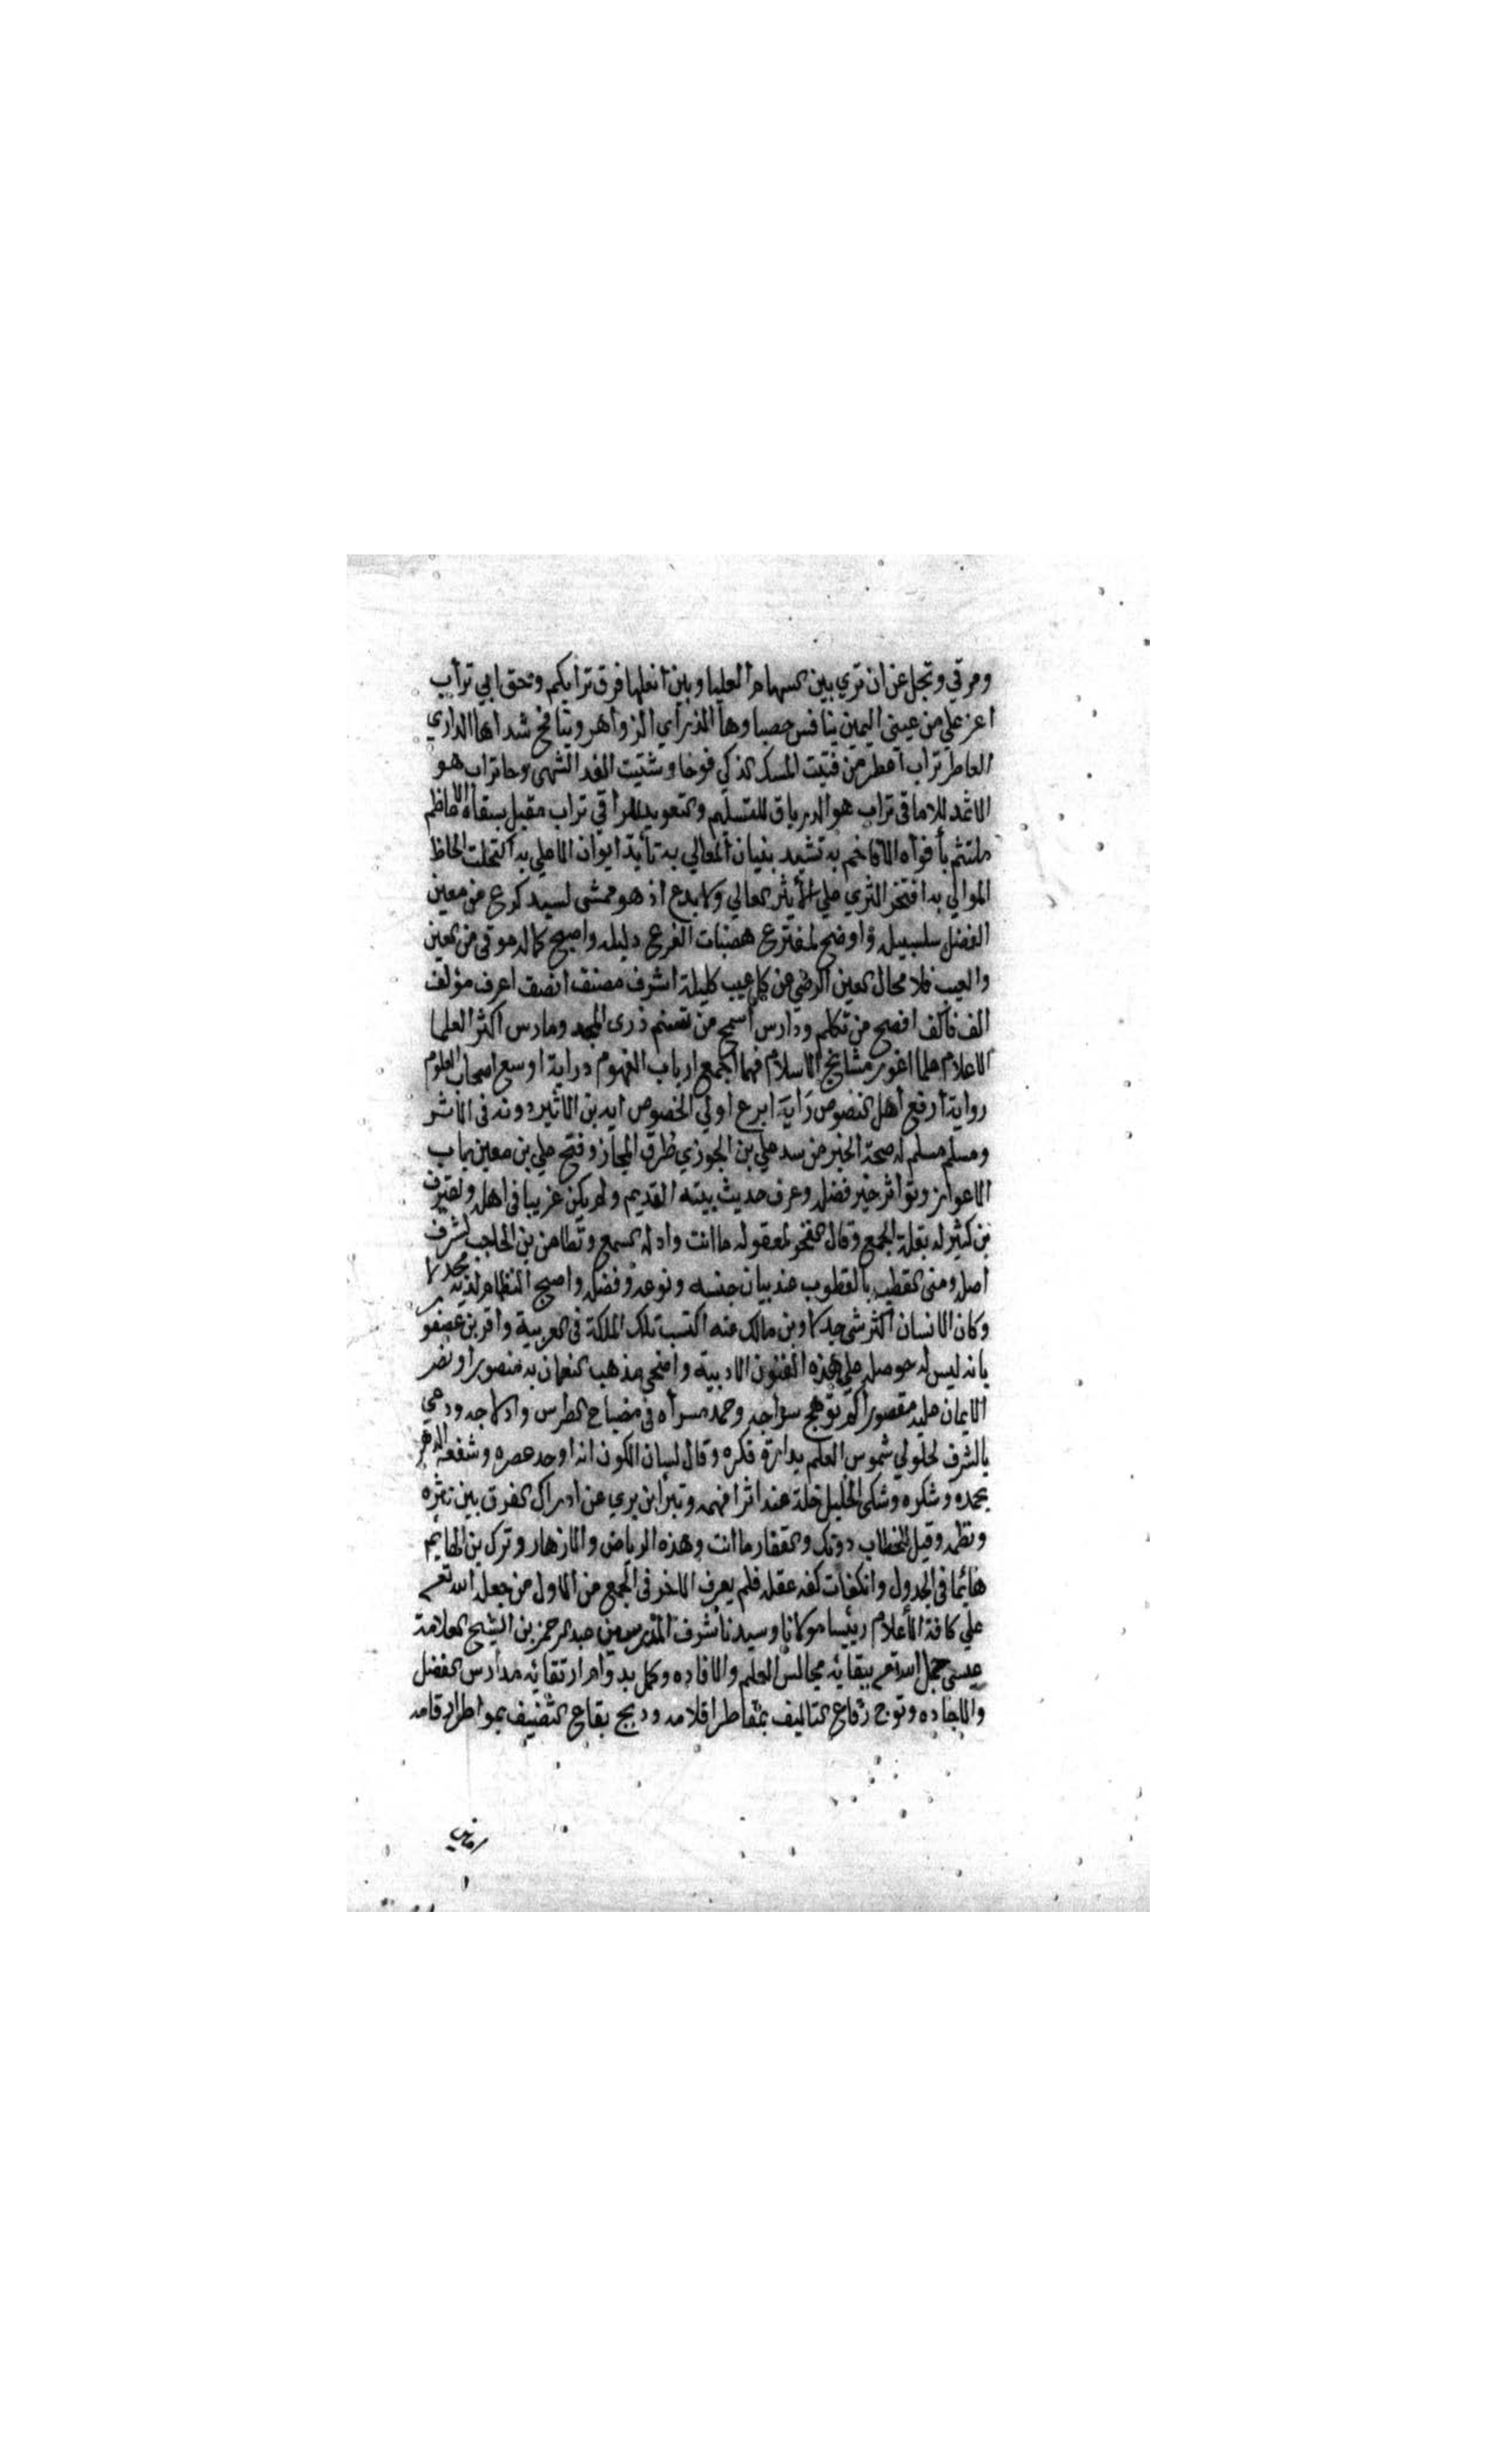 ومرقي وتجل عن ان تري بين السها والعليا وبين انعلها فرق ترابكم وحق ابي تراب
اعز علي من عيني اليمين ينافس حصباوها الذراي الزواهر وينافح شداها الداري
العاطر تراب اعطر من فتيت المسك الذكي فوحا وشتيت الغد الشهي وحا تراب هو
الاثمد للاماقي تراب هو الدرياق للتسليم والتعويد للراقي تراب مقبل بشفاه الاعاظم
ملتثم بأفواه الافاخم به تشيد بنيان المعالي به تأيد ايوان الاعلي به اكتحلت الحاظ
الموالي به افتخر الثري علي الأيثر العالي ولا بدع اذ هو ممشى لسيد كرع من معين
الفضل سلسبيله واوضح لمفترع هضبات الفرع دليله واصبح كماله موقى من العين
والعيب فلا محال لعين الرضي عن كل عيب كليلة اشرف مصنف انصف اعرف مؤلف
الف فألف افصح من تكلم ودارس أسمح من تسنم ذرى المجد ومارس اكثر العلما
الاعلام علما اغور مشايخ الاسلام فهما اجمع ارباب الفهوم دراية اوسع اصحاب العلوم
رواية أرفع أهل النصوص رَاية ابرع اولي الخصوص ايه بن الاثير دونه فى الأثر
ومسلم مسلم له صحة الخبر من سد علي بن الجوزي طرق المجاز وفتح علي بن معين باب
الاعواز وتواتر خبر فضله وعرف حديث بيته القديم ولم يكن غريبا فى اهله واعترف
بن كثير له بقلة الجمع وقال الفخر لمعقوله ما انت وادلة السمع وتطامن بن الحاجب لشرف
أصله ومنى القطب بالقطوب عند بيان جنسه ونوعه وفضله واصبح النظام لديه مجدلا
وكان الانسان اكثر شي جدلا وبن مالك عنه اكتسب تلك الملكة فى العربية واقر بن عصفو
بانه ليس له حوصله علي هذه الفنون الادبية واضحى مذهب النعمان به منصورا ونضر
الايمان عليه مقصورا توهج سراجه وحمد مسراه فى مضباح الطرس وادلاجه ودعي
بالشرف لحلولي شموس العلم بدارة فكره وقال لسان الكون انه اوحد عصره وشفعه الدهر
بحمده وشكره وشكى الخليل خلة عند اثرا فهمه وتبرا بن بري عن ادراك الفرق بين نثره
ونظمه وقيل للخطاب دونك والقفار ما انت وهذه الرياض والازهار وترك بن الهايم
هائما فى الجدول وانكفات كفه عقله فلم يعرف الاخر فى الجمع من الاول من جعله الله تعـ
علي كافة الأعلام رييسا مولانا وسيدنا شرف المدرسين عبد الرحمن بن الشيخ العلامة
عيسى جمل الله تعـ ببقايه مجالس العلم والافاده وكمل بدوام ارتقايه مدارس الفضل
والاجاده وتوج رقاع التاليف بمقاطر اقلامه ودبج بقاع التصنيف بمواطر ارقامه